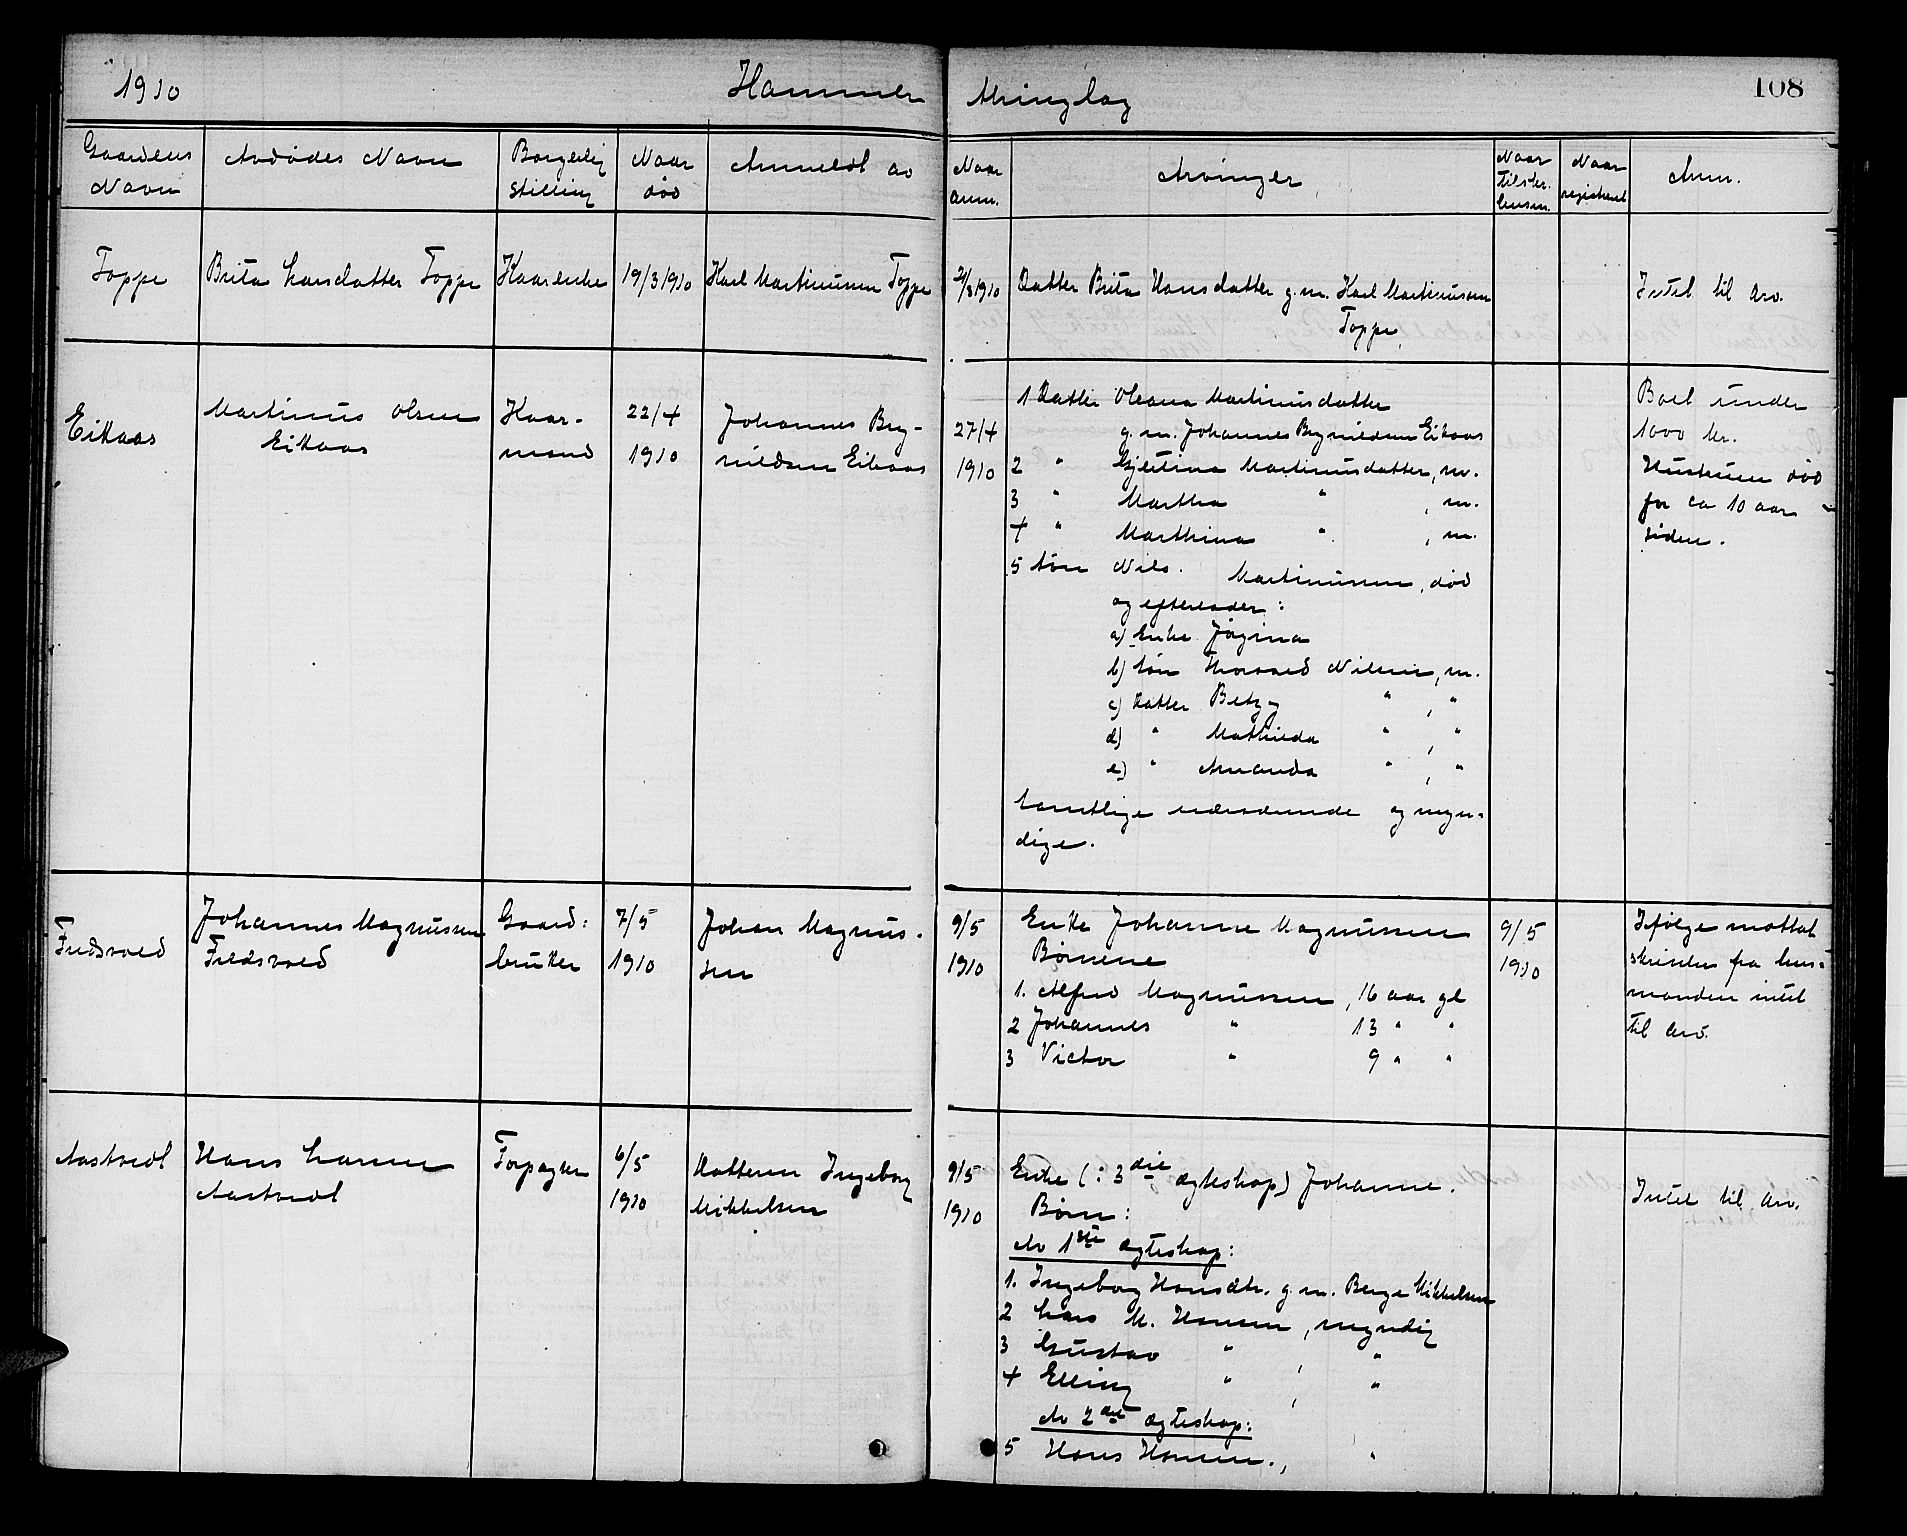 1910 Hammer thinglag 108
Gaardens Navn
Avdødes Navn
Borgerlig stilling
Naar død
Anmeldt av
Naar anm.
Arvinger
Naar tilster. lensm.
Naar registreret
Anm.
Toppe
Brita Larsdatter Toppe
Kaarenke
19/3 1910
Karl Martinussen Toppe
/3 1910
Datter Brita Hansdatter g. m. Karl Martinussen
Toppe
Intet til arv.
Eikaas
Martinus Olsen
Eikaas
Kaar-
mand
22/4
1910
Johannes Bry-
nildsen Eikaas
27/4
1910
1 Datter Oleana Martinusdatter
g. m. Johannes Brynildsen Eikaas
2 " Gjertina Martinusdatter, m.
3 " Martha " , m.
4 " Marthina " , m.
5 Søn Nils Martinussen, død
og efterlader:
a) Enke Jørgina
b) Søn Thorvald Nilsen, m.
c) Datter Betzy " , "
d) " Mathilda " , "
e) " Amanda " , "
Samtlige nærværende og myn-
dige.
Boet under
1000 kr.
Hustruen død
for ca 10 aar
siden.
Fredsvold
Johannes Magnussen
Fredsvold
Gaard:
bruker
7/5
1910
Johan Magnus-
sen
9/5
1910
Enke Johanne Magnussen
Børnene
1. Alfred Magnussen, 16 aar gl
2 Johannes " 13 " "
3 Victor " 9 " "
9/5
1910
Ifølge mottat
skrivelse fra lens-
manden intet
til arv.
Aastvedt
Hans Larsen
Aastvedt
Forpagter
6/5
1910
Datteren Ingeborg
Mikkelsen
9/5
1910
Enke (: 3die ægteskap) Johanne.
Børn:
Av 1ste ægteskap:
1. Ingeborg Hansdtr. g. m. Berge Mikkelsen
2 Lars M. Hansen, myndig
3 Gustav " , "
4 Elling " , "
Av 2det ægteskap:
5 Hans Hansen., "
Intet til arv.